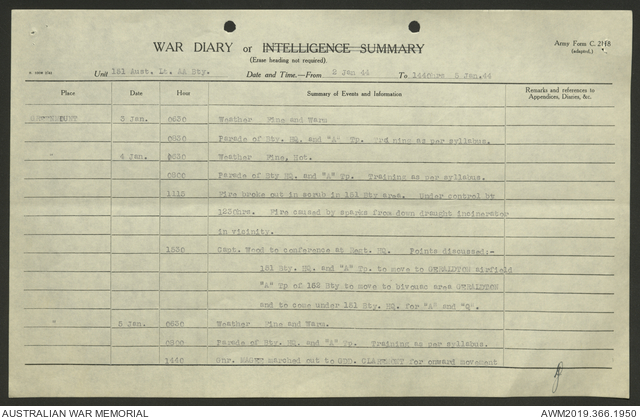 WAR DIARY or INTELLIGENCE SUMMARY
Army Form C. 2118
(adapted.)
(Erase heading not required).
Unit 151 Aust. Lt. AA Bty. Date and Time.—From 2 Jan 44 To 1440hrs 5 Jan.44
Place Date Hour Summary of Events and Information Remarks and references to Appendices, Diaries, &c.
3 Jan. 0630 Weather Fine and Warm
0830 Parade of Bty. HQ. and "A" Tp. as per syllabus.
" 4 Jan. 0630 Weather Fine, Hot.
0800 Parade of Bty HQ. and "A" Tp. Training as per syllabus.
1115 Fire broke out in scrub in 151 Bty area. Under control by
1230hrs. Fire caused by sparks from down draught incinerator
in vicinity.
1530 Capt. Weed to conference at Regt. HQ. Points discussed:-
151 Bty. HQ. and "A" Tp. to move to GERALDTON airfield
"A" Tp of 152 Bty to move to bivouac area GERALDTON
and to come under 151 Bty. HQ. for "A" and "Q".
" 5 Jan. 0630 Weather Fine and Warm.
0800 Parade of Bty. HQ. and "A" Tp. Training as per syllabus.
1440 Gnr. MAGEE marched out to GDD. CLAREMONT for onward movement
AUSTRALIAN WAR MEMORIAL
AWM2019.366.1950